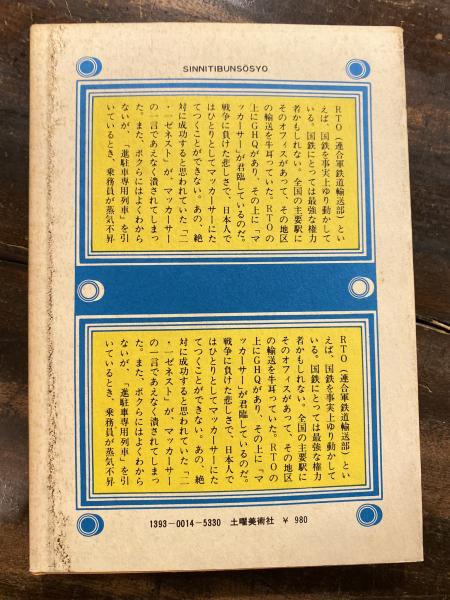 SINNITIBUNSŌSYO
RTO（連合軍鉄道輸送部）とい
えば、国鉄を事実上ゆり動かして
いる。国鉄にとっては最強な権力
者かもしれない。全国の主要駅に
そのオフィスがあって、その地区
の輸送を牛耳っていた。RTOの
上にGHQがあり、その上に「マ
ッカーサー」が君臨しているのだ。
戦争に負けた悲しさで、日本人で
はひとりとしてマッカーサーにた
てつくことができない。あの、絶
対に成功すると思われていた「二
・一ゼネスト」が、マッカーサー
の一言であえなく潰されてしまっ
た。また、ボクらにはよくわから
ないが、「進駐車専用列車」を引
いているとき、乗務員が蒸気不昇
RTO（連合軍鉄道輸送部）とい
えば、国鉄を事実上ゆり動かして
いる。国鉄にとっては最強な権力
者かもしれない。全国の主要駅に
そのオフィスがあって、その地区
の輸送を牛耳っていた。RTOの
上にGHQがあり、その上に「マ
ッカーサー」が君臨しているのだ。
戦争に負けた悲しさで、日本人で
はひとりとしてマッカーサーにた
てつくことができない。あの、絶
対に成功すると思われていた「二
・一ゼネスト」が、マッカーサー
の一言であえなく潰されてしまっ
た。また、ボクらにはよくわから
ないが、「進駐車専用列車」を引
いているとき、乗務員が蒸気不昇
1393-0014-5330 土曜美術社 ￥ 980